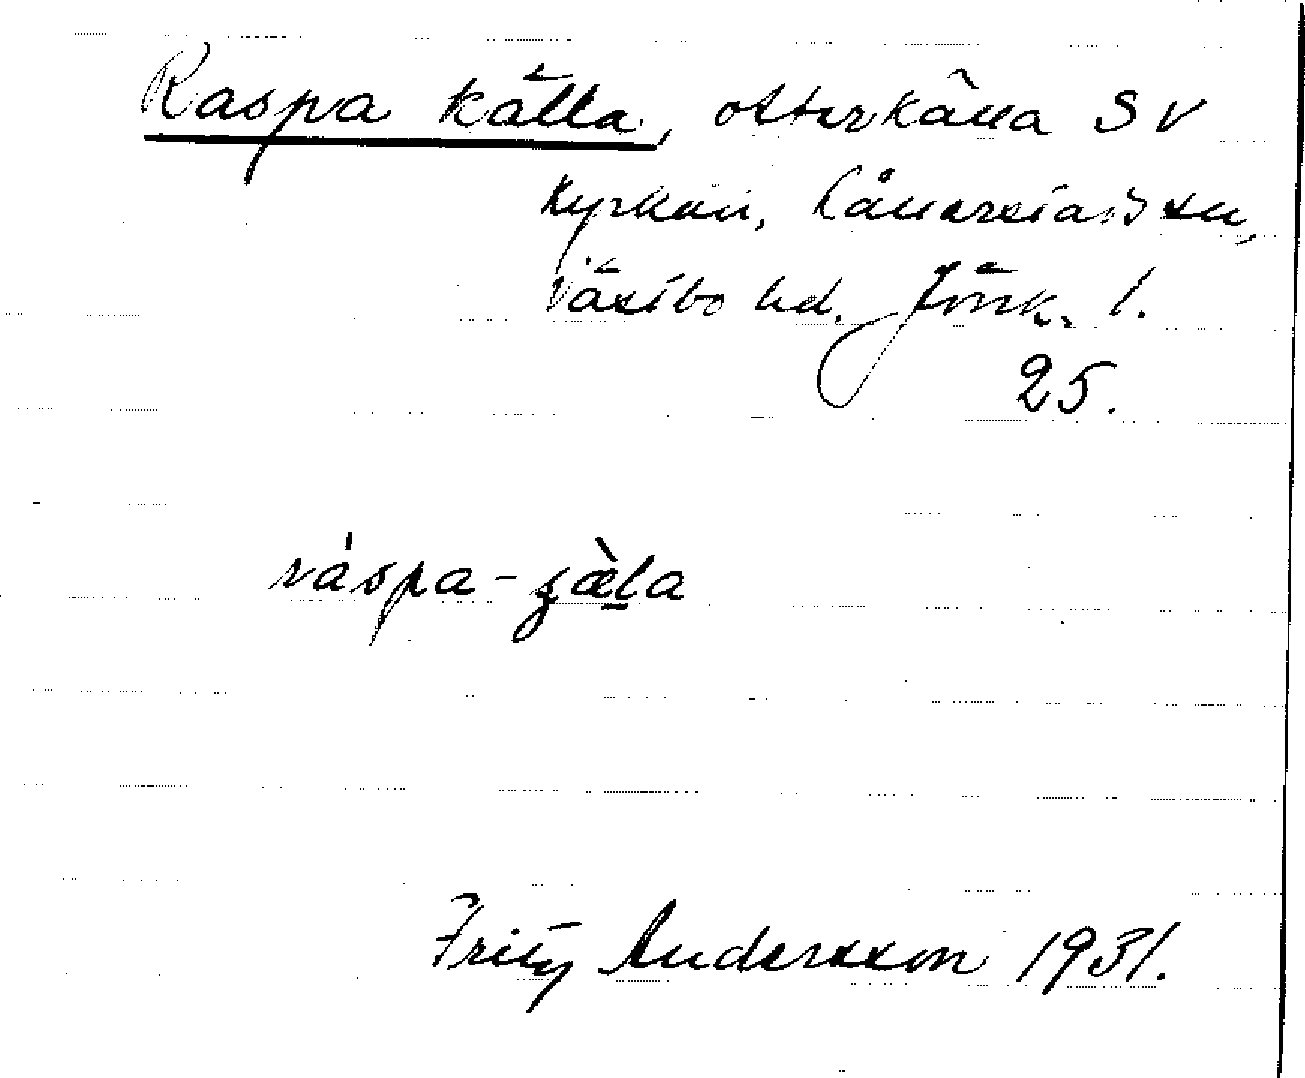 Raspa källa, offerkälla SV
Kyrkan, Kållerstads sn,
Västbo hd. Jönk. l.
25.
ráspa-
Fritz Andersson 1931.